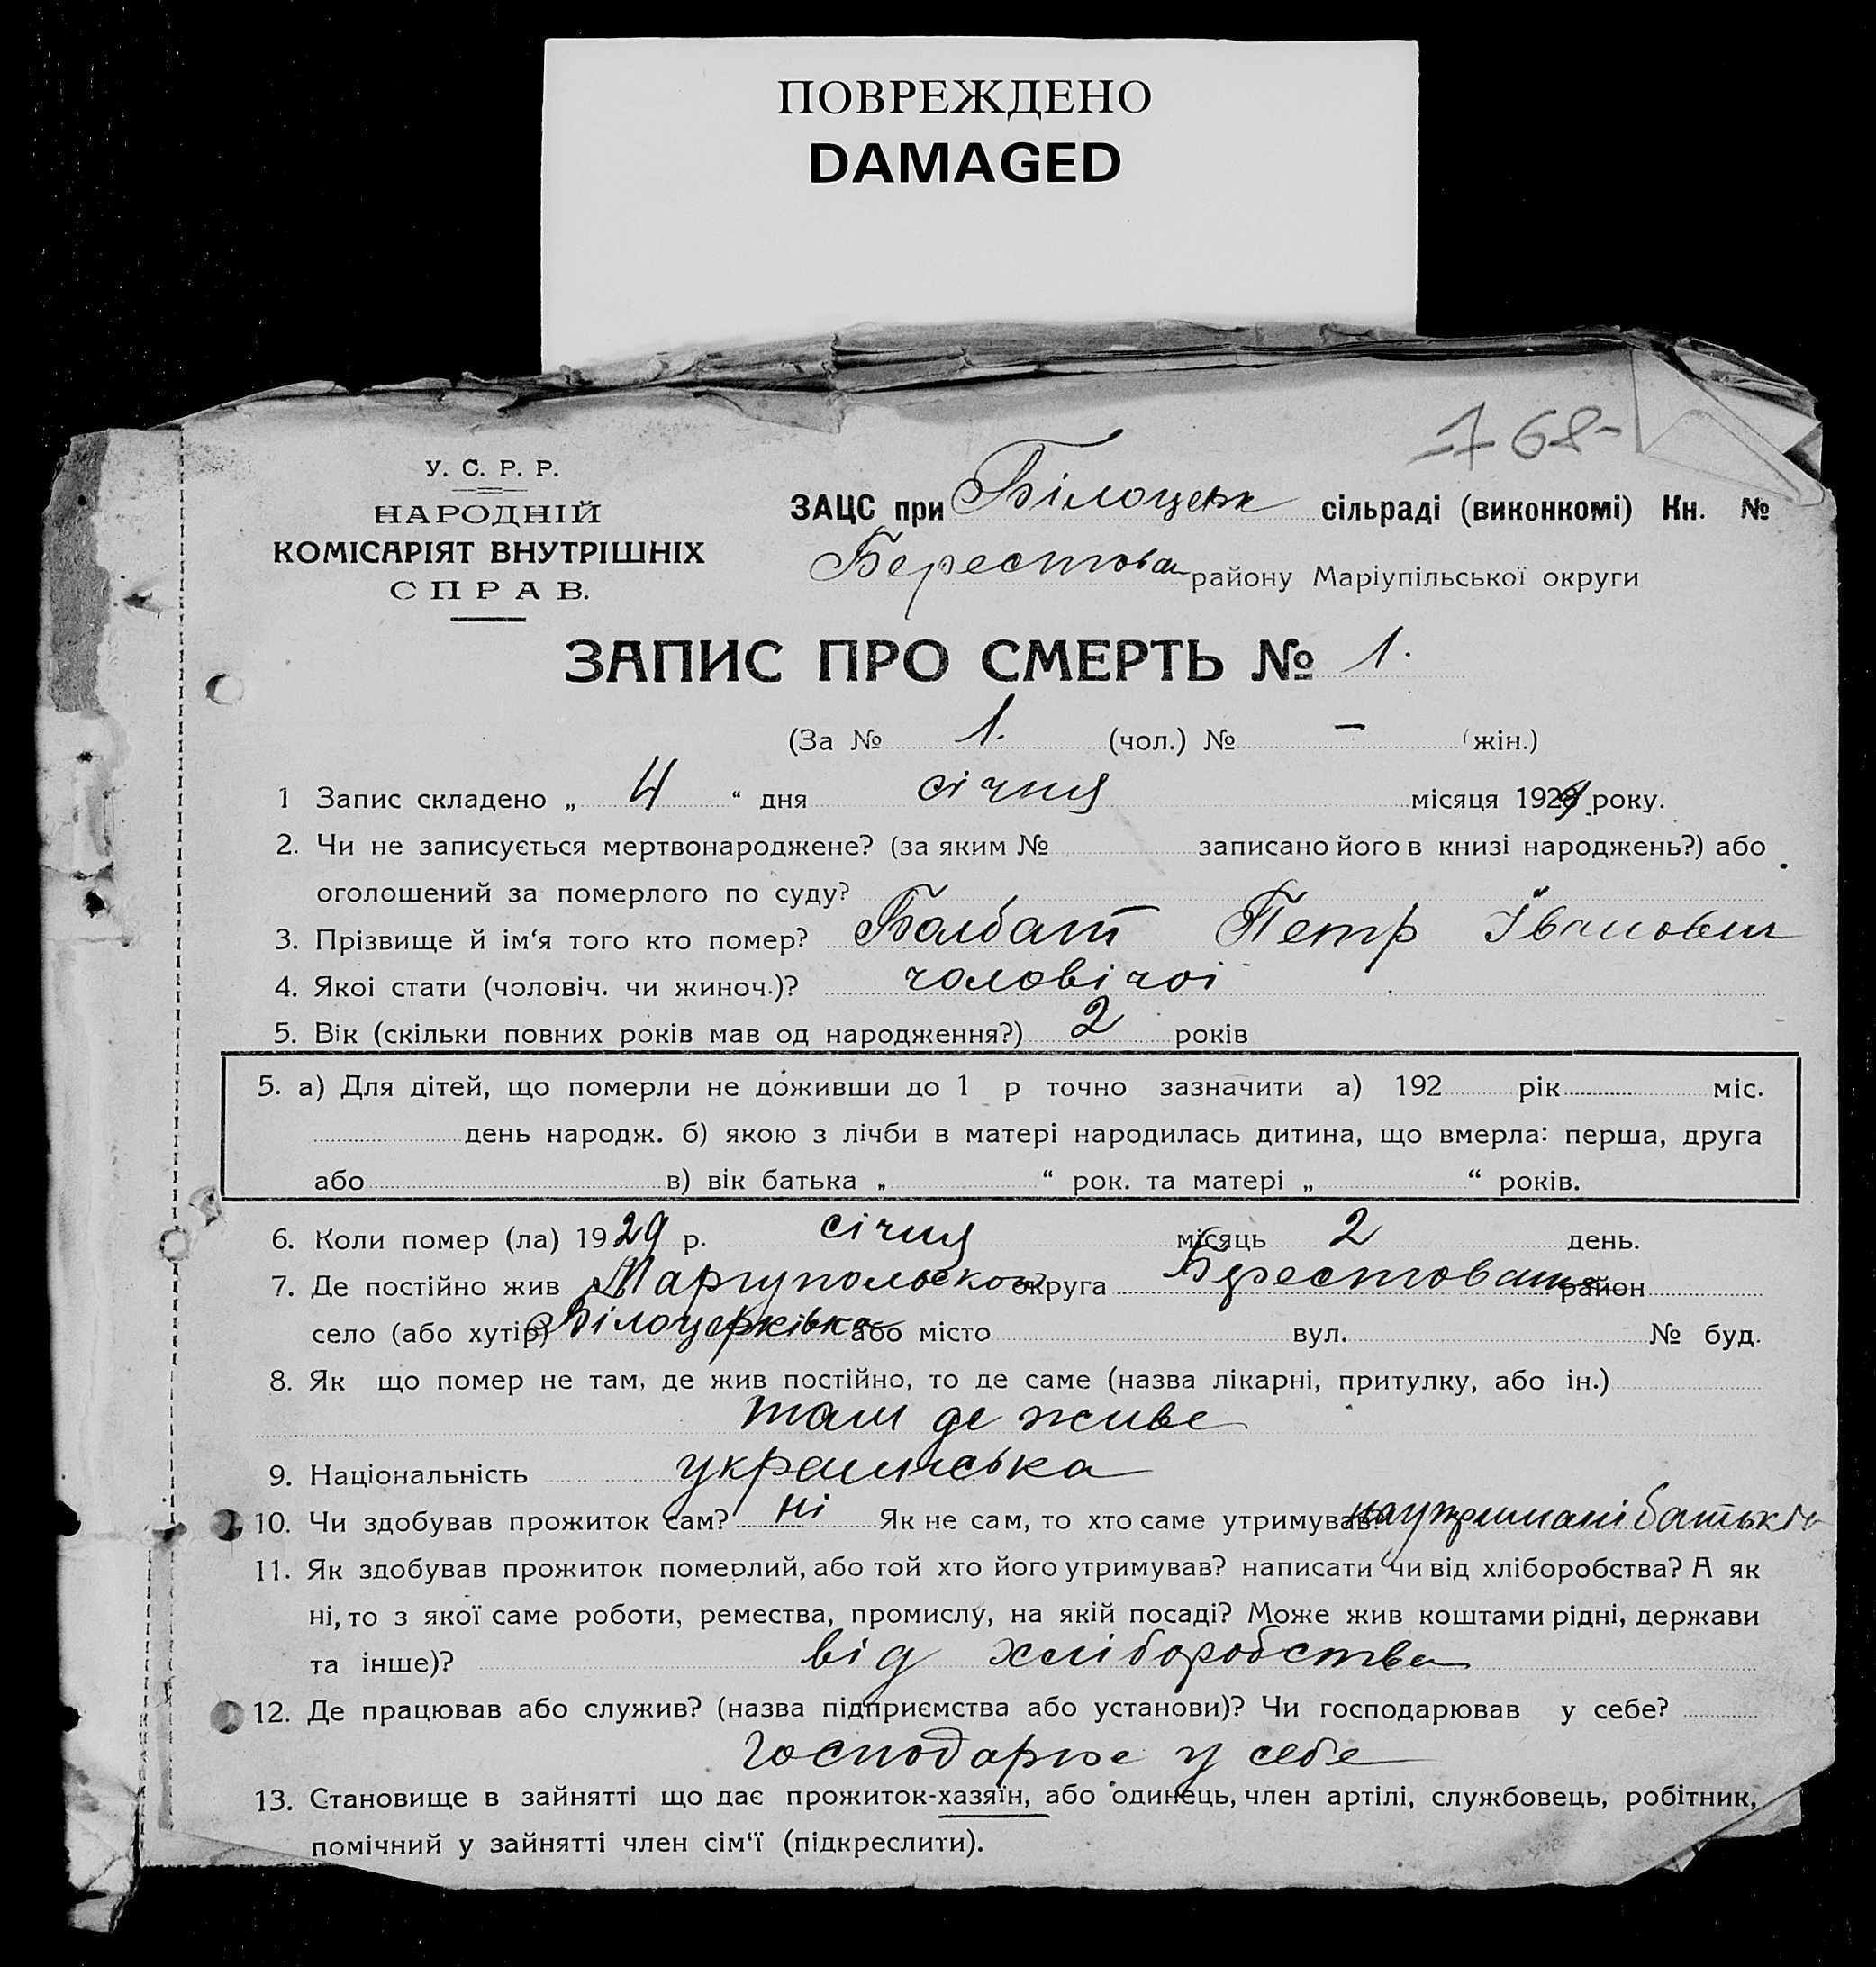 ПОВРЕЖДЕНО
DAMAGED
768-
У. С. Р. Р.
НАРОДНІЙ
КОМІСАРІЯТ ВНУТРІШНІХ
СПРАВ.
ЗАЦС при Білоцерк сільраді (виконкомі) Кн. №
Берестова району Маріупільської округи
ЗАПИС ПРО СМЕРТЬ № 1.
(За № 1. (чол.) № — (жін.)
1 Запис складено „ 4 “ дня січня місяця 1929 року.
2. Чи не записується мертвонароджене? (за яким № записано його в книзі народжень?) або
оголошений за померлого по суду?
3. Прізвище й ім‘я того кто помер? Болбат Петр Іванович
4. Якоі стати (чоловіч. чи жиноч.)? чоловічоі
5. Вік (скільки повних років мав од народження?) 2 років
5. а) Для дітей, що померли не доживши до 1 р точно зазначити а) 192 рік міс.
день народж. б) якою з лічби в матері народилась дитина, що вмерла: перша, друга
або в) вік батька „ “ рок. та матері „ “ років.
6. Коли помер (ла) 1929 р. січня місяць 2 день.
7. Де постійно жив Маріупольско округа Берестовани район
село (або хутір) Білоцерківка або місто вул. № буд.
8. Як що помер не там, де жив постійно, то де саме (назва лікарні, притулку, або ін.)
там де живе
9. Національність украінська
10. Чи здобував прожиток сам? ні Як не сам, то хто саме утримував? на утримані батьків
11. Як здобував прожиток померлий, або той хто його утримував? написати чи від хліборобства? А як
ні, то з якої саме роботи, ремества, промислу, на якій посаді? Може жив коштами рідні, держави
та інше)? від хліборобства
12. Де працював або служив? (назва підприємства або установи)? Чи господарював у себе?
господарює у себе
13. Становище в зайнятті що дає прожиток-хазяїн, або одинець, член артілі, службовець, робітник,
помічний у зайнятті член сім‘ї (підкреслити).